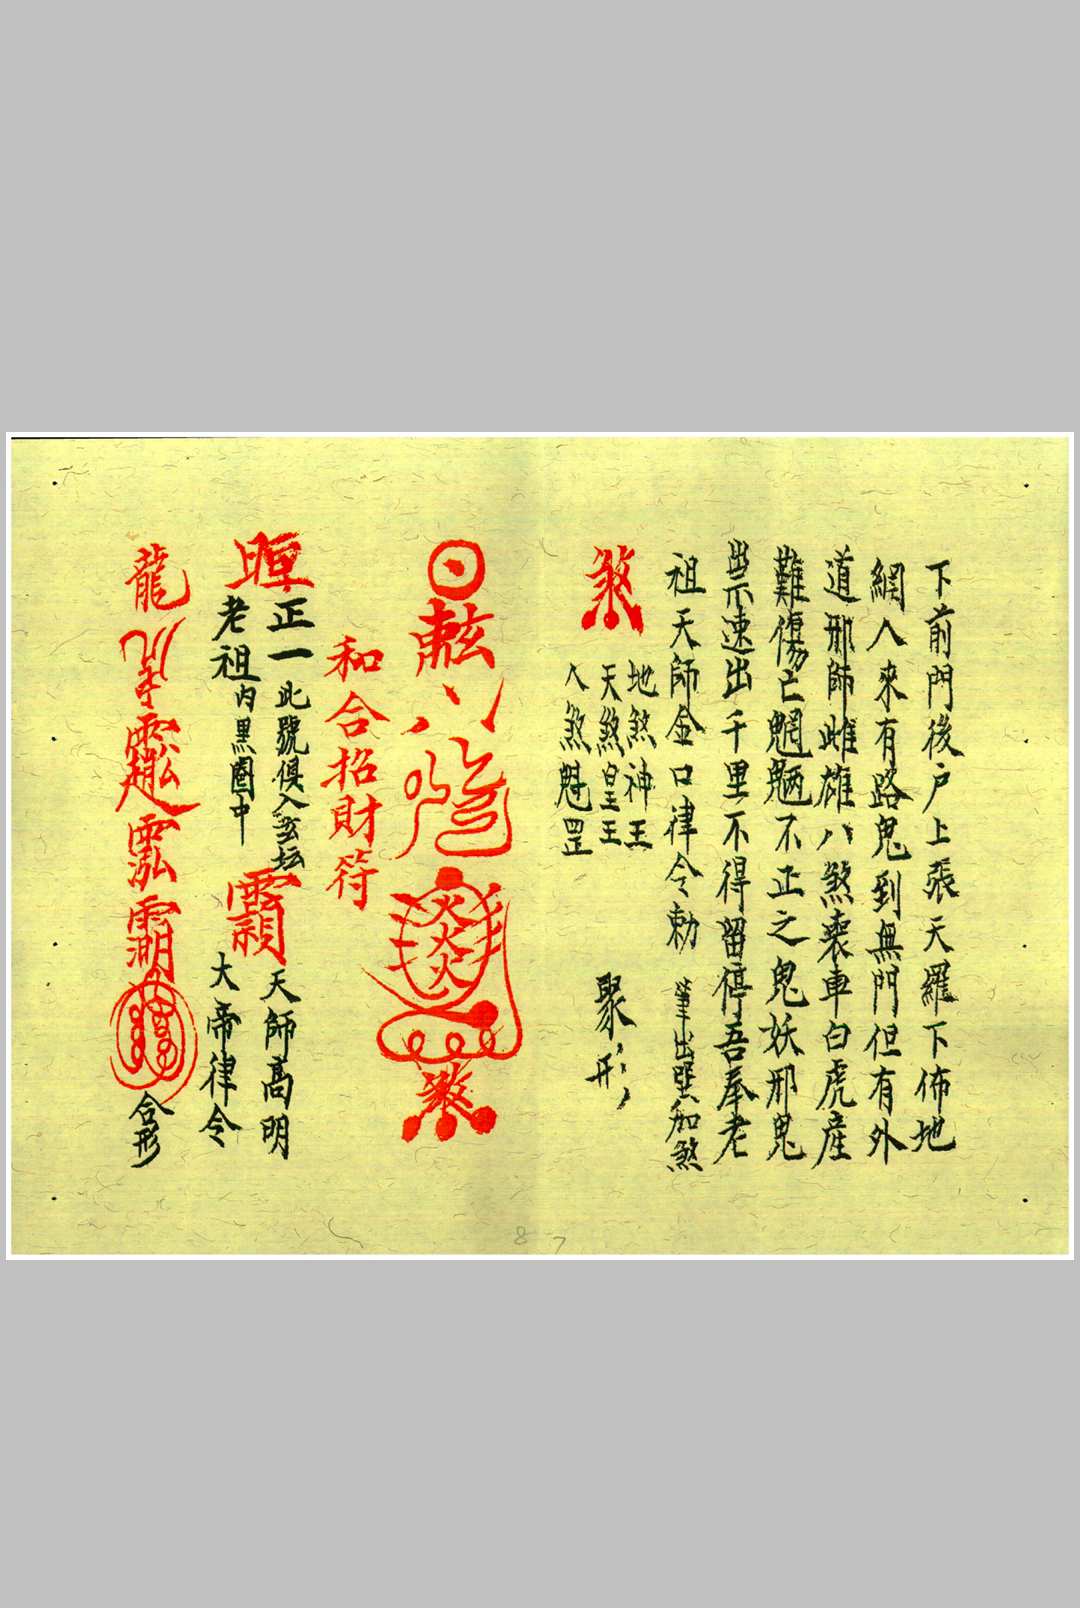 下前門後户上張天羅下佈地
網人來有路鬼到無門但有外
道邪師雌雄八煞喪車白虎産
難傷亡魍魎不正之鬼妖邪鬼
祟速出千里不得留停吾奉老
祖天師金口律令勅 筆出巽加煞
煞
地煞神王
天煞皇王
人煞魁罡
聚形
煞
和合招財符
正一
此號俱入玄坛
内黑圈中
老祖
天師高明
大帝律令
龍
合形
8 7